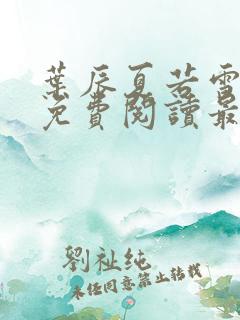 葉辰夏若雪
免費閱讀最
劉祉純
未經同意禁止轉載